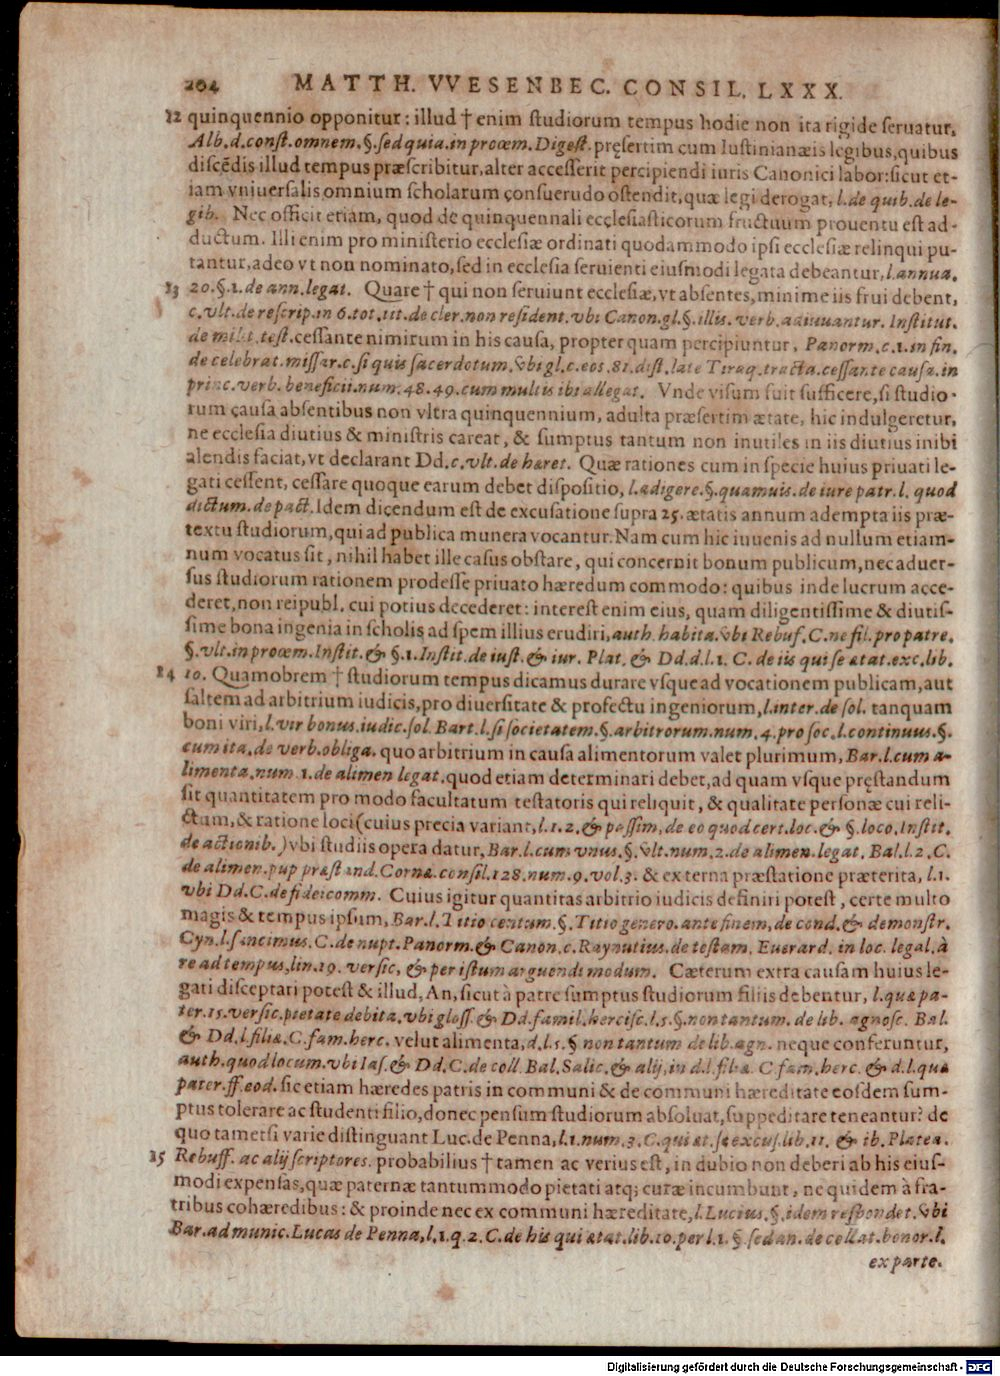 204 MATTH. VVESENBEC. CONSIL. LXXX.
12 quinquennio opponitur: illud † enim studiorum tempus hodie non ita rigide seruatur,
Alb. d. const. omnem. §. sed quia. in proœm. Digest. pręsertim cum Iustinianæis legibus, quibus
discēdis illud tempus præscribitur, alter accesserit percipiendi iuris Canonici labor: sicut et-
iam vniuersalis omnium scholarum consuetudo ostendit, quæ legi derogat, l. de quib. de le-
gib. Nec officit etiam, quod de quinquennali ecclesiasticorum fructuum prouentu est ad-
ductum. Illi enim pro ministerio ecclesiæ ordinati quodammodo ipsi ecclesiæ relinqui pu-
tantur, adeo vt non nominato, sed in ecclesia seruienti eiusmodi legata debeantur, l. annua.
13 20. §. 1. de ann. legat. Quare † qui non seruiunt ecclesiæ, vt absentes, minime iis frui debent,
c. vlt. de rescrip. in 6. tot. tit. de cler. non resident. vbi Canon. gl. §. illis. verb. adiuuantur. Institut.
de milit. test. cessante nimirum in his causa, propter quam percipiuntur, Panorm. c. 1. in fin.
de celebrat. missar. c. si quis sacerdotum. & vbi gl. c. eos. 81. dist. late Tiraq. tracta. cessante causa. in
princ. verb. beneficii. num. 48. 49. cum multis ibi allegat. Vnde visum fuit sufficere, si studio-
rum causa absentibus non vltra quinquennium, adulta præsertim ætate, hic indulgeretur,
ne ecclesia diutius & ministris careat, & sumptus tantum non inutiles in iis diutius inibi
alendis faciat, vt declarant Dd. c. vlt. de hæret. Quæ rationes cum in specie huius priuati le-
gati cessent, cessare quoque earum debet dispositio, l. adigere. §. quamuis. de iure patr. l. quod
dictum. de pact. Idem dicendum est de excusatione supra 25. ætatis annum adempta iis præ-
textu studiorum, qui ad publica munera vocantur. Nam cum hic iuuenis ad nullum etiam-
num vocatus sit, nihil habet ille casus obstare, qui concernit bonum publicum, nec aduer-
sus studiorum rationem prodesse priuato hæredum commodo: quibus inde lucrum acce-
deret, non reipubl. cui potius decederet: interest enim eius, quam diligentissime & diutis-
sime bona ingenia in scholis ad spem illius erudiri, auth. habita. vbi Rebuf. C. ne fil. pro patre.
§. vlt. in proœm. Instit. & §. 1. Instit. de iust. & iur. Plat. & Dd. d. l. 1. C. de iis qui se ætat. exc. lib.
14 10. Quamobrem † studiorum tempus dicamus durare vsque ad vocationem publicam, aut
saltem ad arbitrium iudicis, pro diuersitate & profectu ingeniorum, l. inter. de sol. tanquam
boni viri, l. vir bonus. iudic. sol. Bart. l. si societatem. §. arbitrorum. num. 4. pro soc. l. continuus. §.
cum ita. de verb. obliga. quo arbitrium in causa alimentorum valet plurimum, Bar. l. cum a-
limenta. num. 1. de alimen legat. quod etiam determinari debet, ad quam vsque pręstandum
sit quantitatem pro modo facultatum testatoris qui reliquit, & qualitate personæ cui reli-
ctum, & ratione loci (cuius precia variant, l. 1. 2. & passim. de eo quod cert. loc. & §. loco. Instit.
de actionib.) vbi studiis opera datur, Bar. l. cum vnus. §. vlt. num. 2. de alimen. legat. Bal. l. 2. C.
de alimen. pup præstand. Cornæ. consil. 128. num. 9. vol. 3. & externa præstatione præterita, l. 1.
vbi Dd. C. de fideicomm. Cuius igitur quantitas arbitrio iudicis definiri potest, certe multo
magis & tempus ipsum, Bar. l. Titio centum. §. Titio genero. ante finem, de cond. & demonstr.
Cyn. l. sancimus. C. de nupt. Panorm. & Canon. c. Raynutius. de testam. Euerard. in loc. legal. à
re ad tempus, lin. 19. versic. & per istum arguendi modum. Cæterum extra causam huius le-
gati disceptari potest & illud, An, sicut à patre sumptus studiorum filiis debentur, l. quæ pa-
ter. 15. versic. pietate debita. vbi gloss. & Dd. famil. hercisc. l. 5. §. non tantum. de lib. agnosc. Bal.
& Dd. l. filiæ. C. fam. herc. velut alimenta, d. l. 5. § non tantum de lib. agn. neque conferuntur,
auth. quod locum. vbi Ias. & Dd. C. de coll. Bal. Salic. & alij, in d. l. filiæ. C fam. herc. & d. l. quæ
pater. ff. eod. sic etiam hæredes patris in communi & de communi hæreditate eosdem sum-
ptus tolerare ac studenti filio, donec pensum studiorum absoluat, suppeditare teneantur? de
quo tametsi varie distinguant Luc. de Penna, l. 1. num. 3. C. qui æt. se excus. lib. 11. & ib. Platea.
15 Rebuff. ac alij scriptores. probabilius † tamen ac verius est, in dubio non deberi ab his eius-
modi expensas, quæ paternæ tantummodo pietati atq; curæ incumbunt, ne quidem à fra-
tribus cohæredibus: & proinde nec ex communi hæreditate, l. Lucius. §. idem respondet. & vbi
Bar. ad munic. Lucas de Penna, l. 1. q. 2. C. de his qui ætat. lib. 10. per l. 1. §. sed an. de collat. bonor. l.
ex parte.
Digitalisierung gefördert durch die Deutsche Forschungsgemeinschaft - DFG